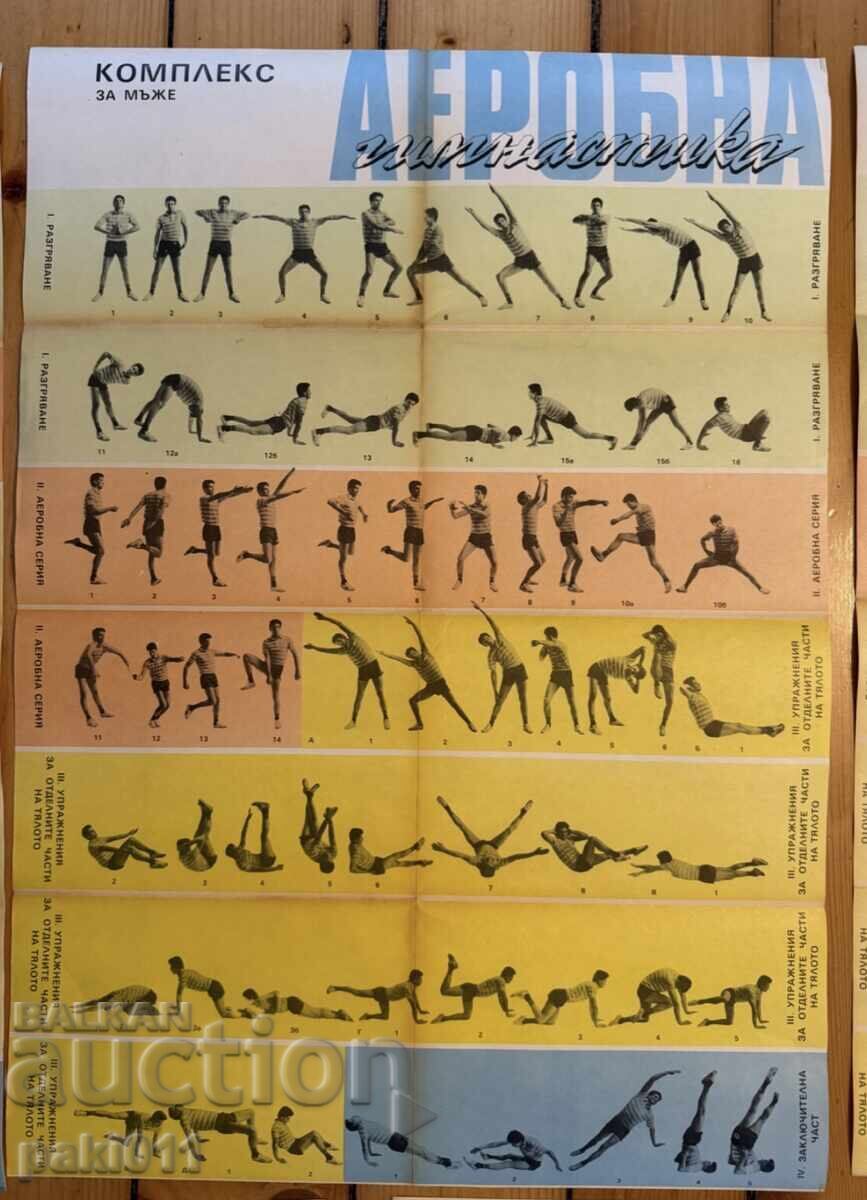 КОМПЛЕКС
ЗА МЪЖЕ
АЕРОБНА
гимнастика
I. РАЗГРЯВАНЕ
1 2 3 4 5 6 7 8 9 10
I. РАЗГРЯВАНЕ
I. РАЗГРЯВАНЕ
11 12а 12б 13 14 15а 15б 16
I. РАЗГРЯВАНЕ
II. АЕРОБНА СЕРИЯ
1 2 3 4 5 6 7 8 9 10а 10б
II. АЕРОБНА СЕРИЯ
II. АЕРОБНА СЕРИЯ
11 12 13 14 А 1 2 3 4 5 6 Б 1
III. УПРАЖНЕНИЯ
ЗА ОТДЕЛНИТЕ ЧАСТИ
НА ТЯЛОТО
III. УПРАЖНЕНИЯ
ЗА ОТДЕЛНИТЕ ЧАСТИ
НА ТЯЛОТО
2 3 4 5 6 7 8 В 1
III. УПРАЖНЕНИЯ
ЗА ОТДЕЛНИТЕ ЧАСТИ
НА ТЯЛОТО
III. УПРАЖНЕНИЯ
ЗА ОТДЕЛНИТЕ ЧАСТИ
НА ТЯЛОТО
3б Г 1 2 3 4 5
III. УПРАЖНЕНИЯ
ЗА ОТДЕЛНИТЕ ЧАСТИ
НА ТЯЛОТО
III. УПРАЖНЕНИЯ
ЗА ОТДЕЛНИТЕ ЧАСТИ
НА ТЯЛОТО
Д 1 2 1 2 3 4 5
IV. ЗАКЛЮЧИТЕЛНА
ЧАСТ
BALKAN
auction
paki011
НА ТЯЛОТО
НА ТЯЛОТО
НА ТЯЛОТО